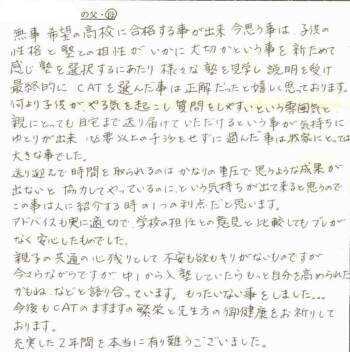 の父・母
無事 希望の高校に合格する事が出来 今思う事は、子供の
性格と塾との相性がいかに大切かという事を 新ためて
感じ 塾を選択するにあたり 様々な 塾を見学し 説明を受け
最終的に CATを選んだ事は正解だったと嬉しく思っております。
何より子供が やる気を起こし 質問もしやすいという雰囲気と
親にとっても 自宅まで送り届けていただけるという事が 気持ちに
ゆとりが出来 必要以上の干渉をせずに過んだ事は我家にとっては
大きな事でした。
送り迎えで時間を取られるのは かなりの重圧で思うような成果が
出ないと 協力してやっているのに、という気持ちが出て来ると思うので
この事は人に紹介する時の1つの利点だと思います。
アドバイスも実に適切で 学校の担任との意見と比較してもブレが
なく安心したものでした。
親子の共通の心残りとして 不安も欲もキリがないものですが
今さらながらですが 中1から入塾していたらもっと自分を高められた
かもね、などと語り合っています。もったいない事をしました…
今後もCATのますますの繁栄と先生方の御健康をお祈りして
おります。
充実した2年間を本当に有り難うございました。